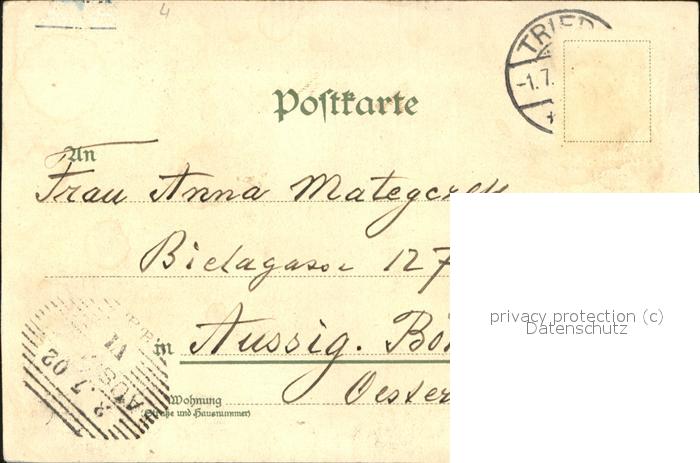 4
TRIER
-1.7.
Postkarte
An
Frau Anna
Bielagasse 127
in Aussig. Bö
Oester
Wohnung
(Straße und Hausnummer)
2.7.02
AUS
VI
privacy protection (c)
Datenschutz